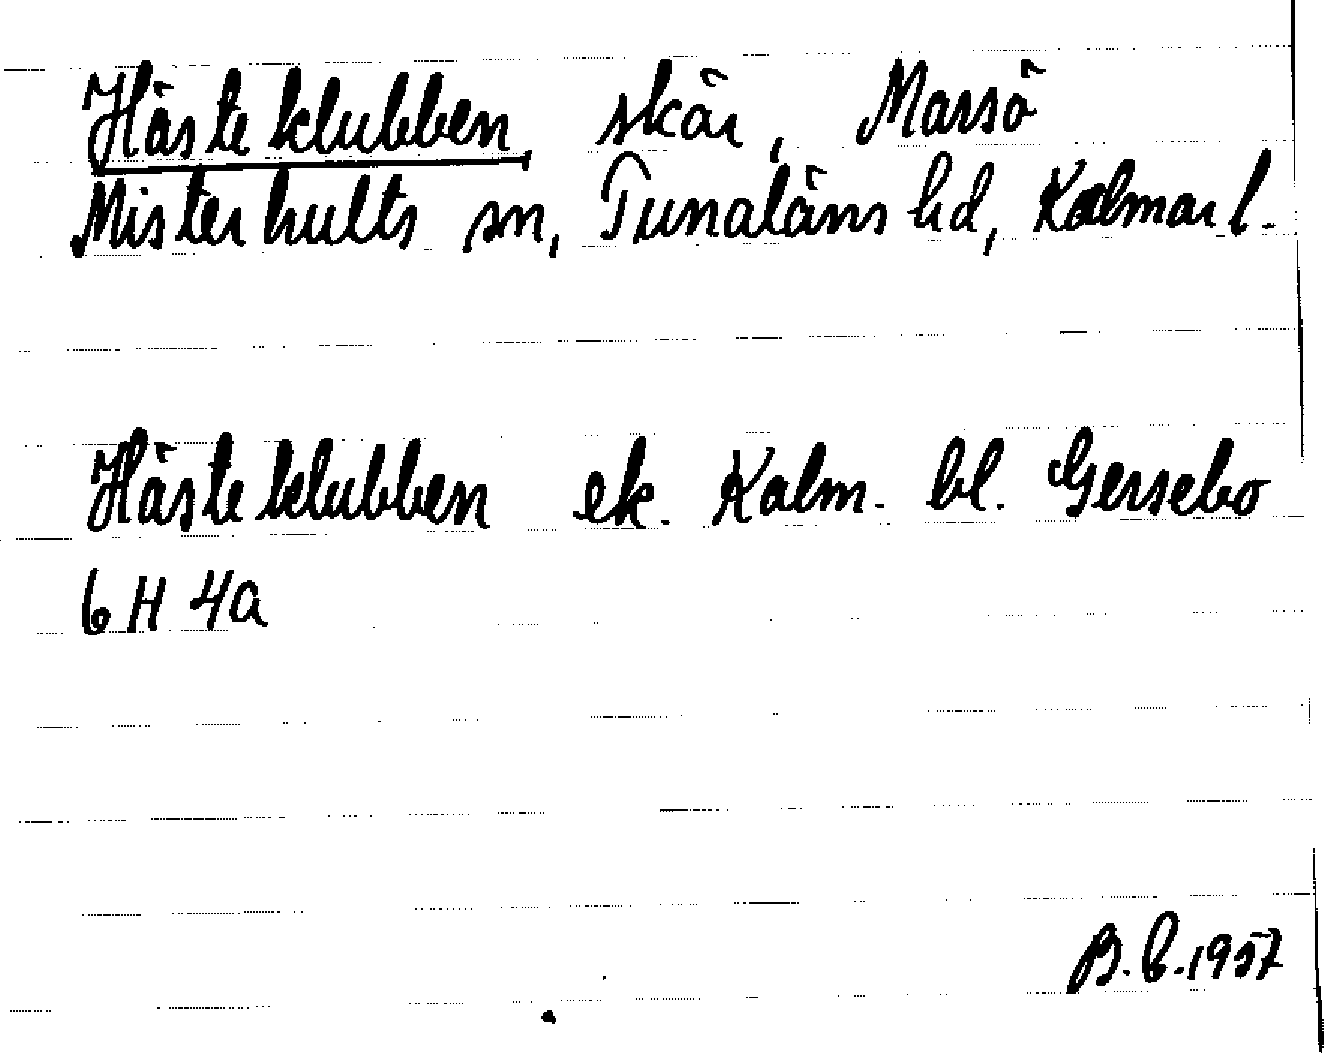 Hästeklubben, skär, Marsö
Misterhults sn, Tunaläns hd, Kalmar l.
Hästeklubben ek. Kalm. bl. Gersebo
6 H 4a
B.b.1957